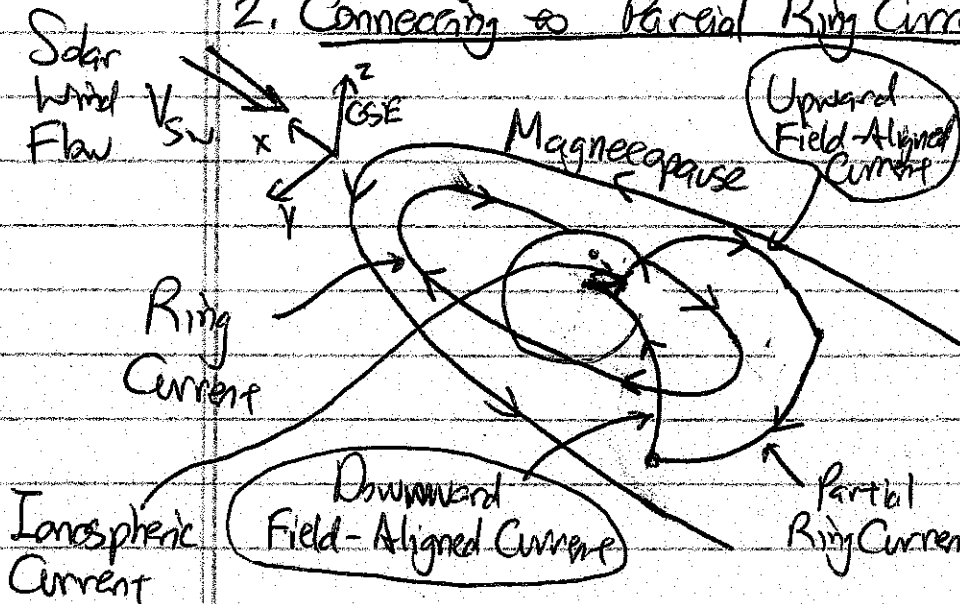 2. Connecting to Partial Ring Curre
Solar
Wind
Flow
V
SW
z
GSE
x
y
Magnetopause
Upward
Field-Aligned
Current
Ring
Current
Ionospheric
Current
Downward
Field-Aligned Current
Partial
Ring Curren